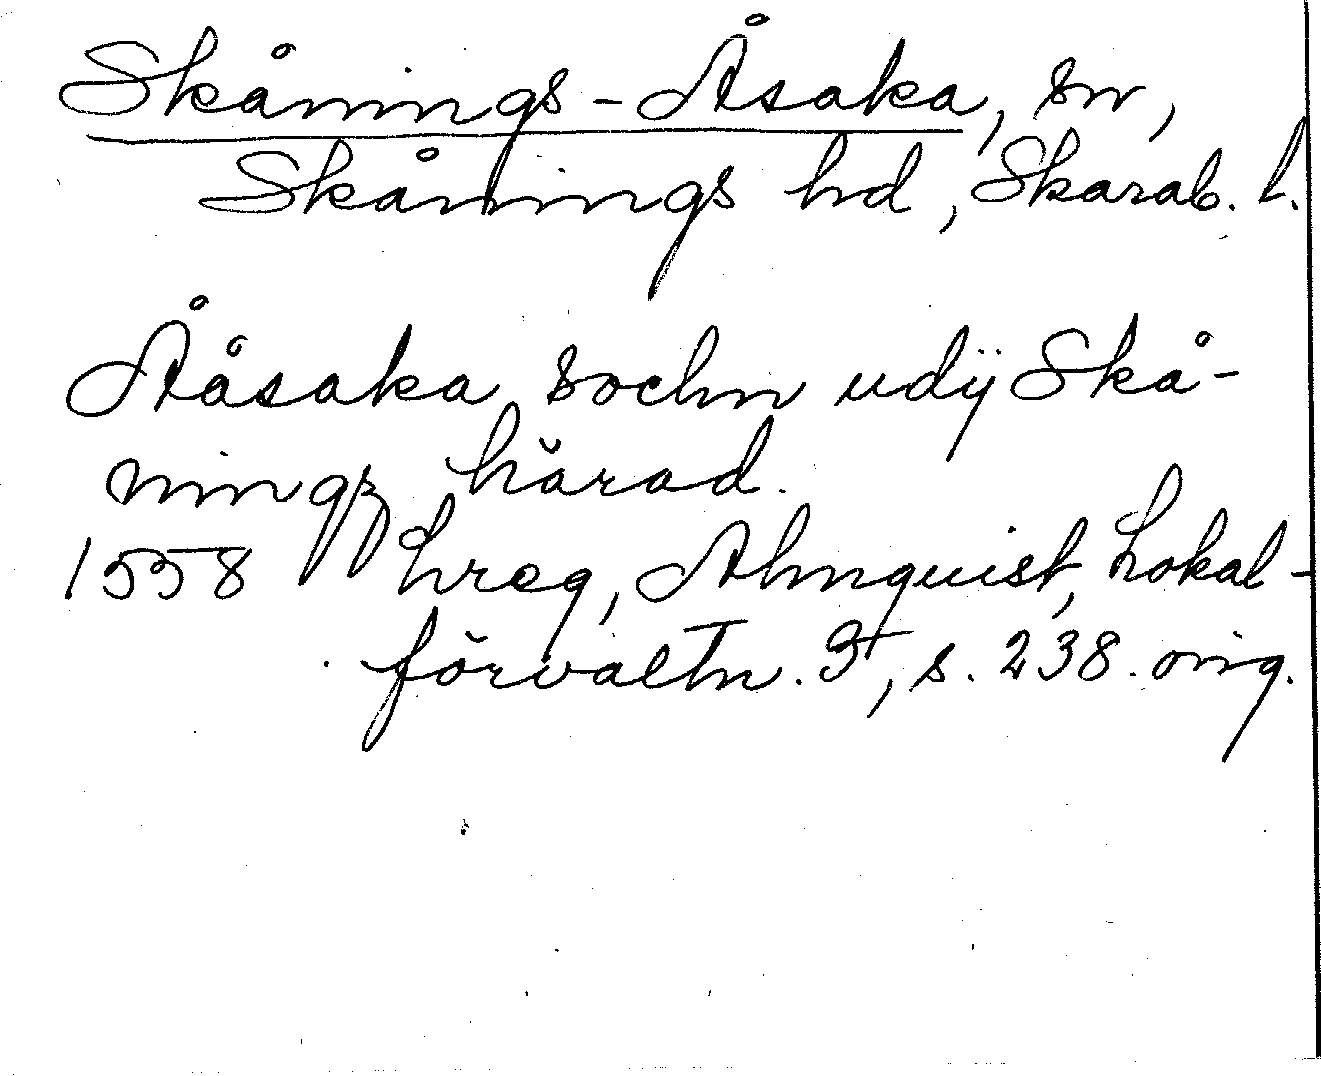 Skånings-Åsaka, sn,
Skånings hd, Skarab. l.
Ååsaka sochn udij Skå-
ningz härad.
1558 hreg, Almquist, Lokal-
förvaltn. 3, s. 238. orig.